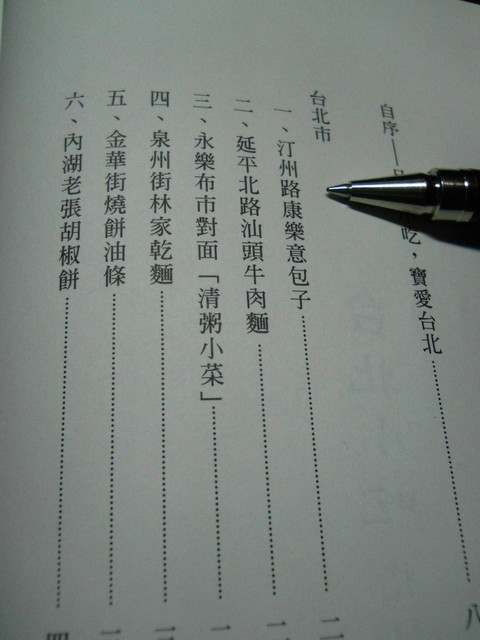 自序——吃，寶愛台北……八
台北市
一、汀州路康樂意包子……
二、延平北路汕頭牛肉麵……
三、永樂布市對面「清粥小菜」……
四、泉州街林家乾麵……
五、金華街燒餅油條……
六、內湖老張胡椒餅……